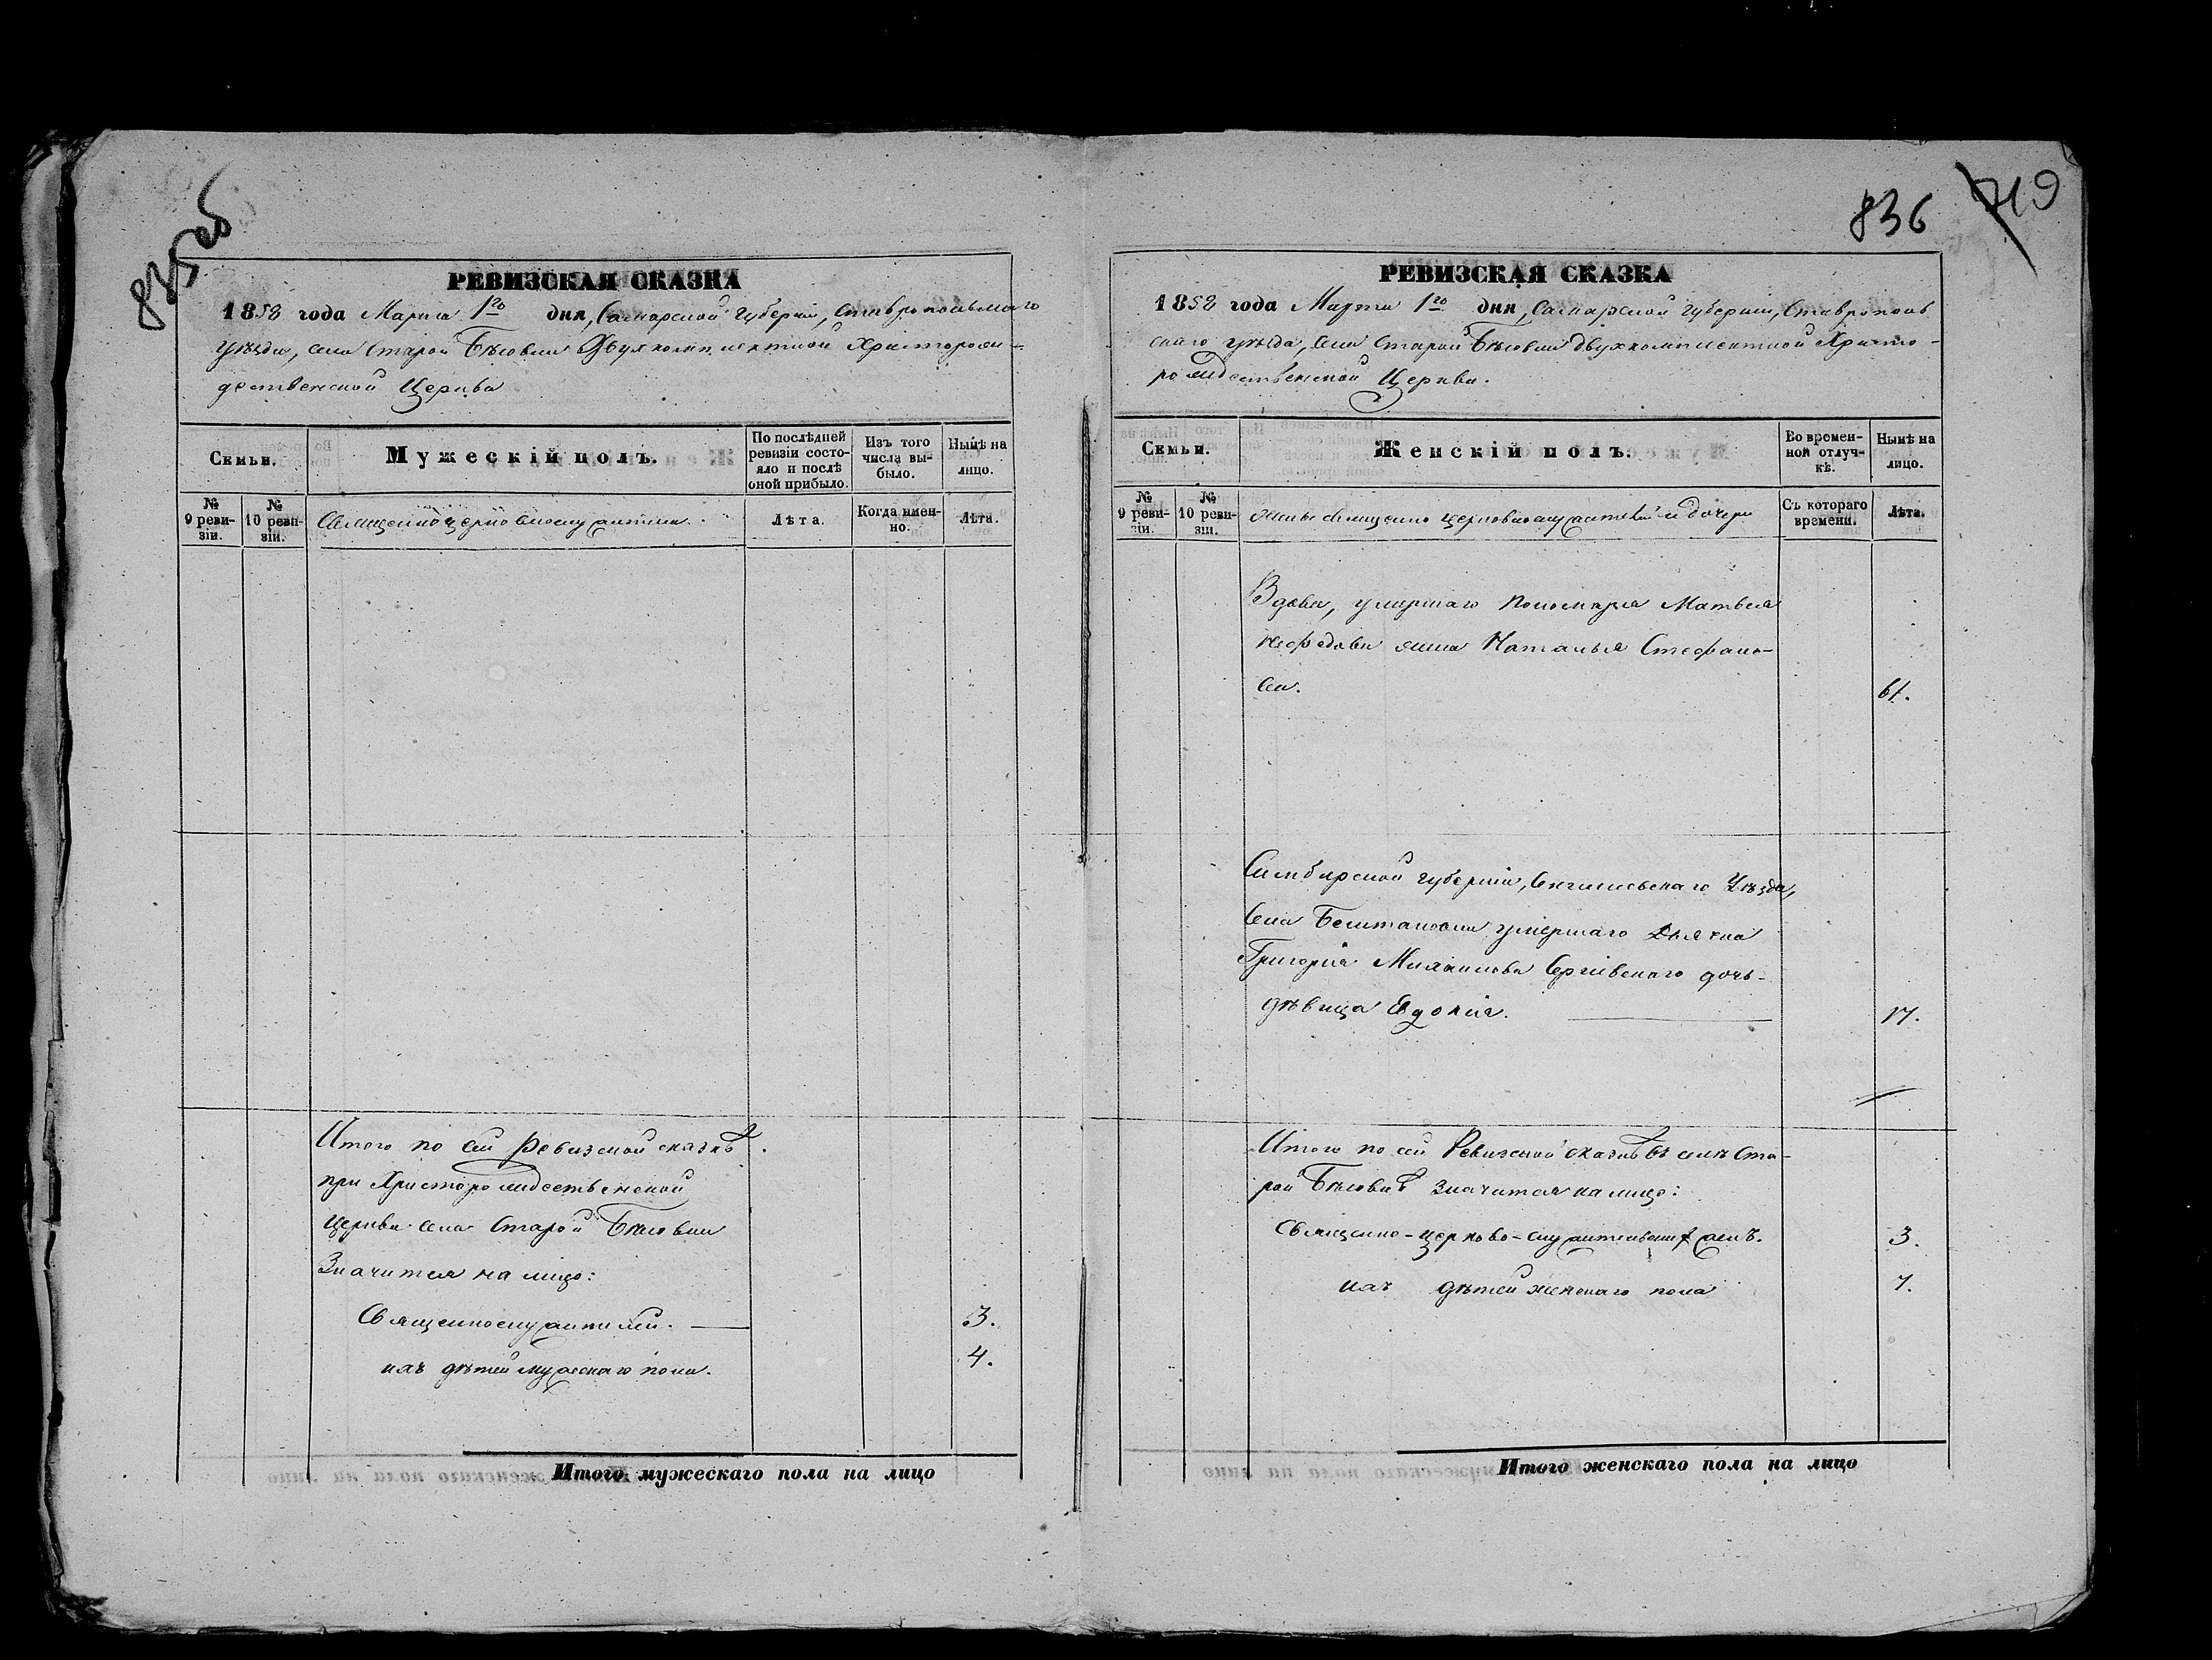 835об
836
719
РЕВИЗСКАЯ СКАЗКА
1858 года Марта 1го дня, Самарской Губерніи, Ставропольскаго
уѣзда, села Старой Бѣсовки Двухкомплектной Христорож-
дественской Церкви
Семьи.
Мужескій полъ.
По послѣдней
ревизіи состо-
яло и послѣ
оной прибыло.
Изъ того
числа вы-
было.
Нынѣ на
лицо.
№
9 реви-
зіи.
№
10 реви-
зіи.
Священноцерковнослужители.
Лѣта.
Когда имен-
но.
Лѣта.
Итого по сей Ревизской сказкѣ
при Христорождественской
Церкви села Старой Бѣсовки
Значится на лицо:
Священнослужителей. 3.
ихъ дѣтей мужескаго пола. 4.
Итого мужескаго пола на лицо
РЕВИЗСКАЯ СКАЗКА
1858 года Марта 1го дня, Самарской Губерніи, Ставрополь
скаго уѣзда, села Старой Бѣсовки двухкомплектной Христо-
рождественской Церкви.
Семьи.
Женскій полъ.
Во времен-
ной отлуч-
кѣ.
Нынѣ на
лицо.
№
9 реви-
зіи.
№
10 реви-
зіи.
жены священно церковнослужителей и дочери
Съ котораго
времени.
Лѣта.
Вдова, умершаго Пономаря Матвея
Нефедова жена Наталья Стефано-
ва. 61.
Симбирской губерніи, Сенгилеевскаго Уѣзда,
Села умершаго Дьячка
Григорія Михаилова Сергіевскаго дочь-
дѣвица Евдокія. 17.
Итого по сей Ревизской сказкѣ въ селѣ Ста-
рой Бѣсовкѣ значится на лицо:
Священно-церково-служительскихъ женъ. 3.
ихъ дѣтей женскаго пола 7.
Итого женскаго пола на лицо